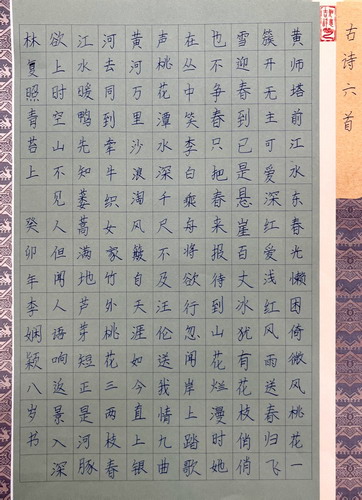 古诗六首
黄师塔前江水东春光懒困倚微风桃花一
簇开无主可爱深红爱浅红风雨送春归飞
雪迎春到已是悬崖百丈冰犹有花枝俏俏
也不争春只把春来报待到山花烂漫时她
在丛中笑李白乘舟将欲行忽闻岸上踏歌
声桃花潭水深千尺不及汪伦送我情九曲
黄河万里沙浪淘风簸自天涯如今直上银
河去同到牵牛织女家竹外桃花三两枝春
江水暖鸭先知蒌蒿满地芦芽短正是河豚
欲上时空山不见人但闻人语响返景入深
林复照青苔上 癸卯年李娴颖八岁书